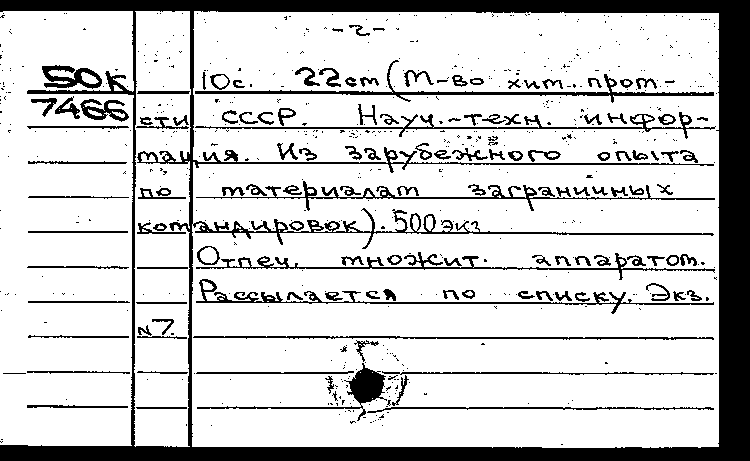 -2-
50к 10с. 22см (М-во хим. пром-
7466 сти СССР. Науч.-техн. инфор-
мация. Из зарубежного опыта
по материалам заграничных
командировок). 500 экз
Отпеч. множит. аппаратом.
Рассылается по списку. Экз.
N7.